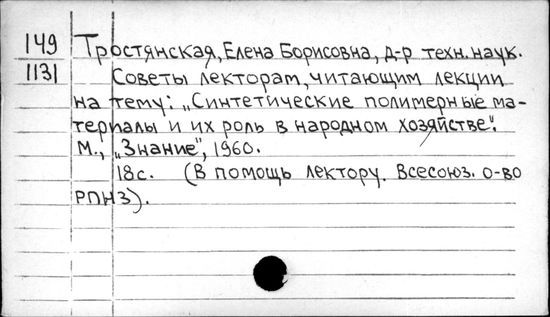 149 Тростянская, Елена Борисовна, д-р техн. наук.
1131 Советы лекторам, читающим лекции
на тему: „Синтетические полимерные ма-
териалы и их роль в народном хозяйстве".
М., „Знание", 1960.
18с. (В помощь лектору. Всесоюз. о-во
РПНЗ).